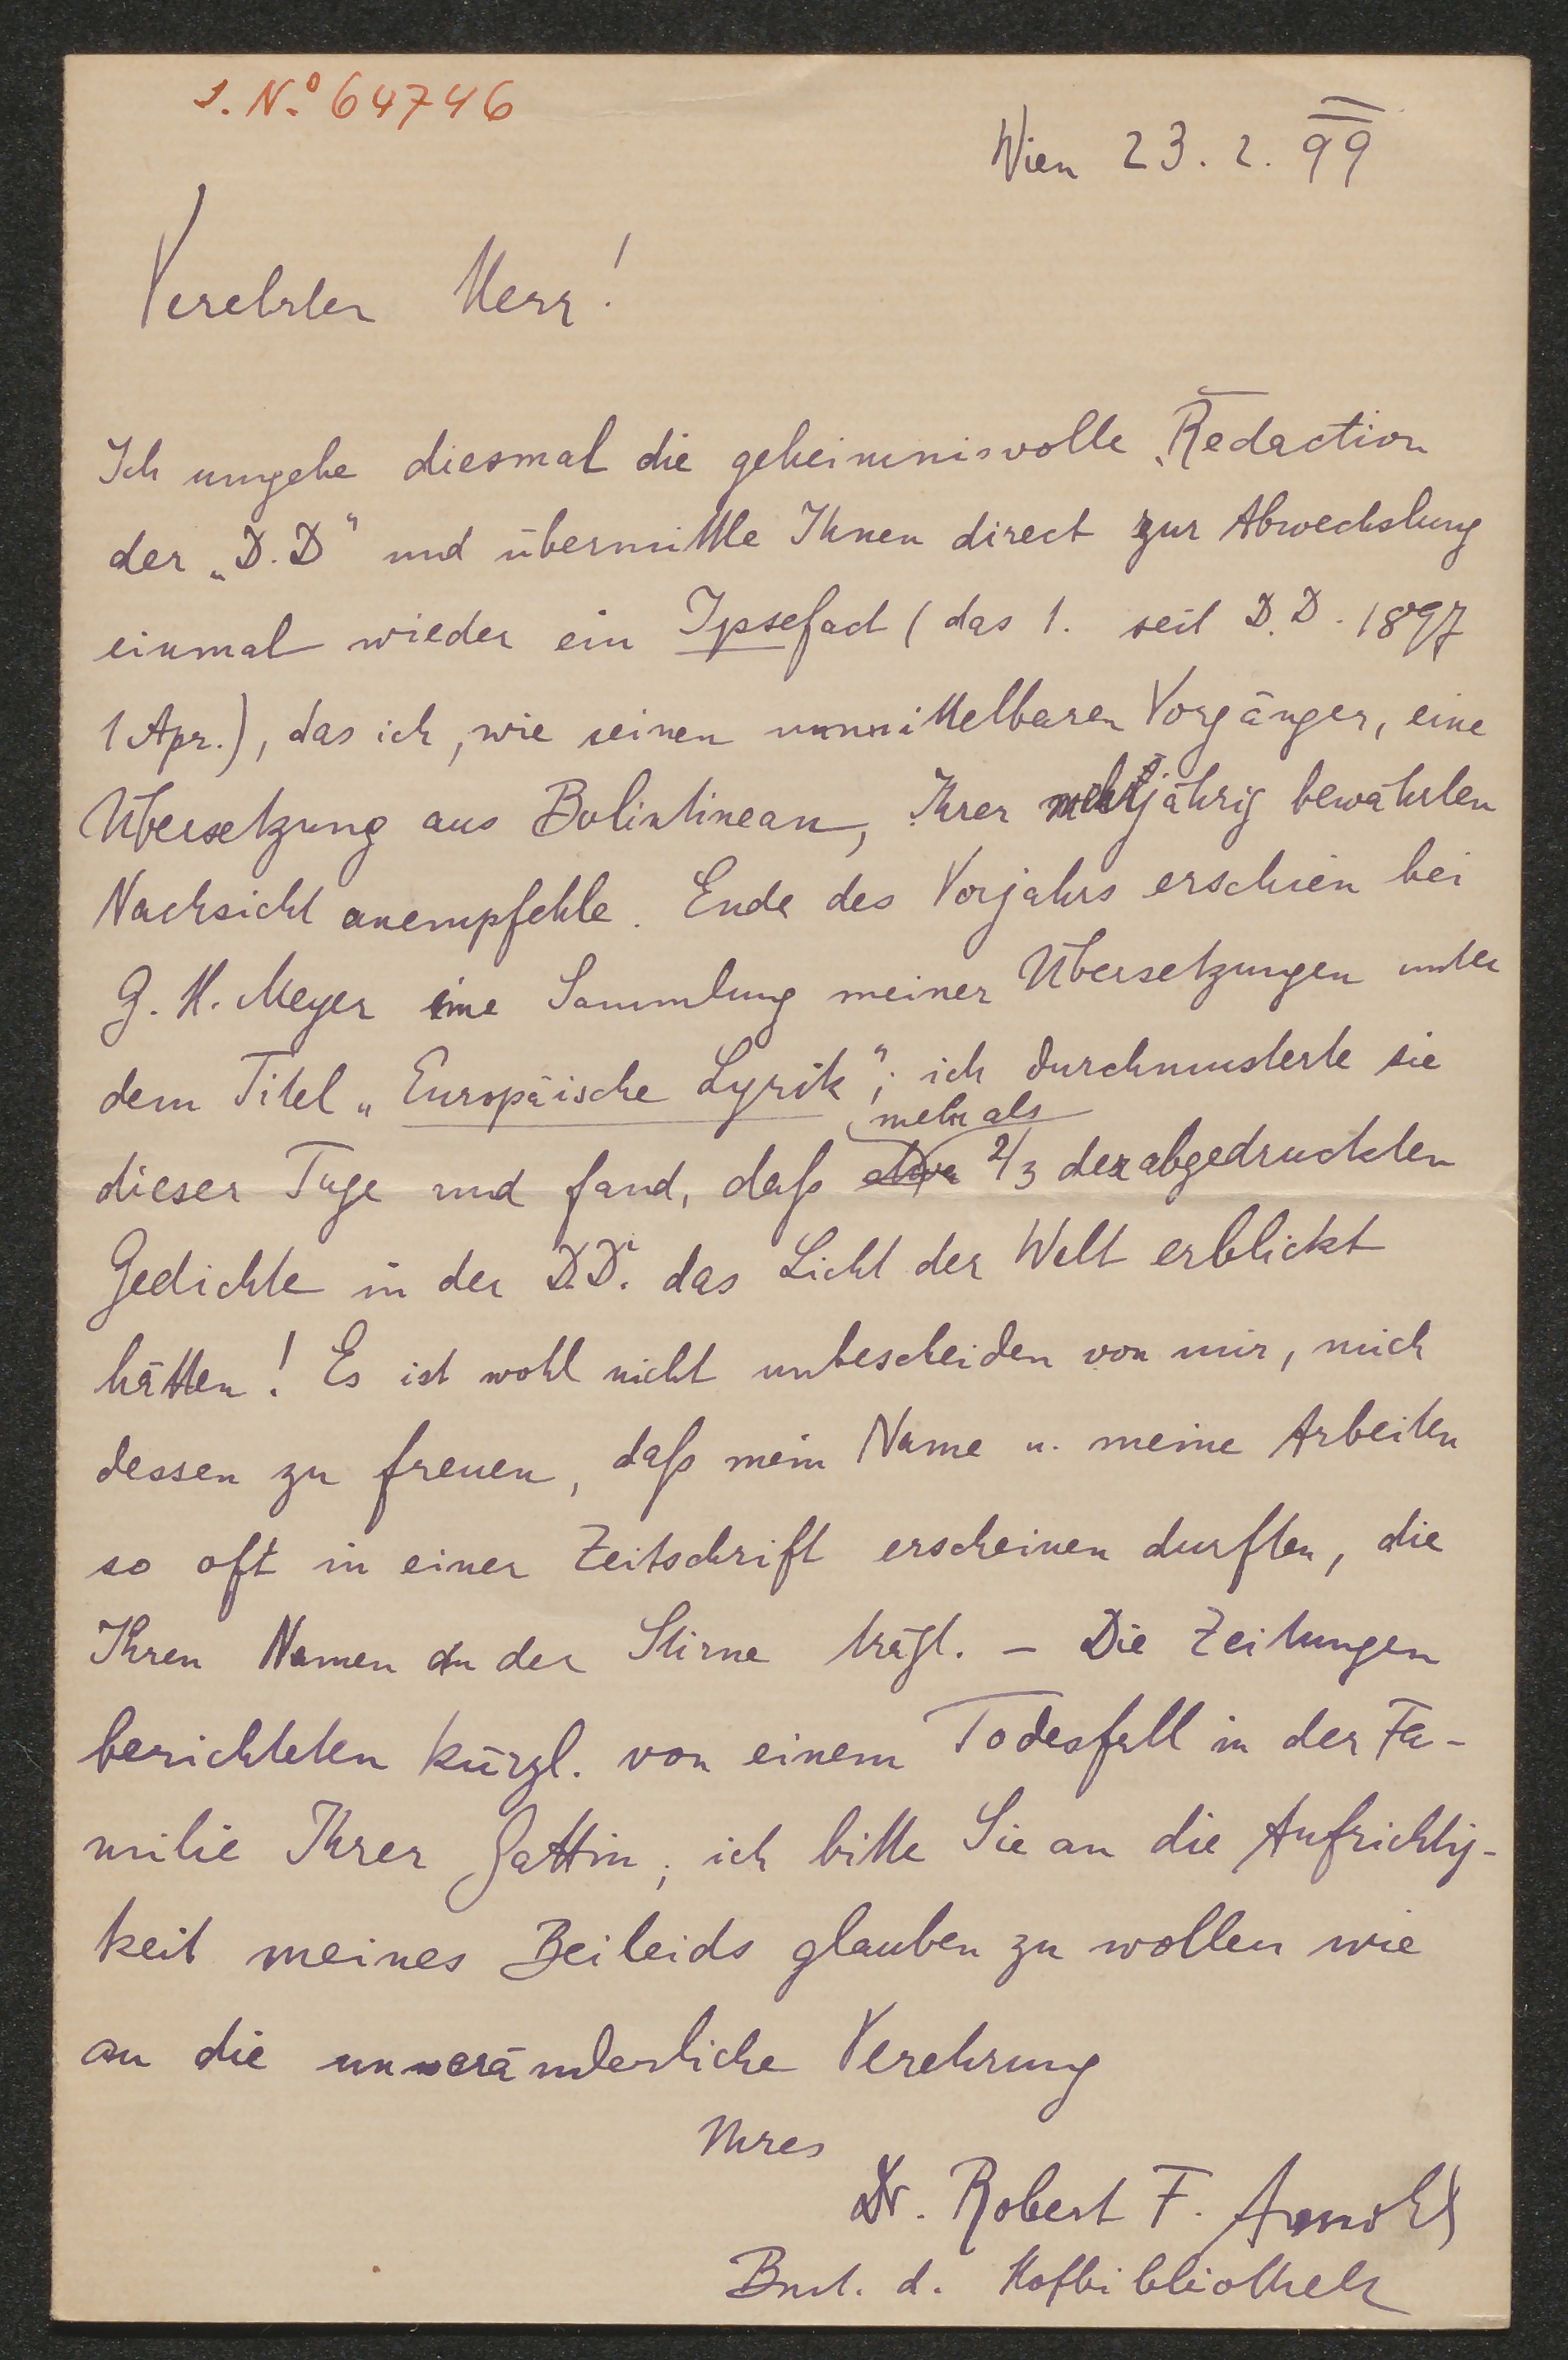 J. Nº 64746
Wien 23. 2. 99
Verehrter Herr!
Ich umgehe diesmal die geheimnisvolle Redaction
der „D. D“ und übermittle Ihnen direct zur Abwechslung
einmal wieder ein Ipsefact (das 1. seit D. D. 1897
1 Apr.), das ich, wie seinen unmittelbaren Vorgänger, eine
Übersetzung aus Bolintineanu, Ihrer mehrjährig bewährten
Nachsicht anempfehle. Ende des Vorjahrs erschien bei
G. H. Meyer eine Sammlung meiner Übersetzungen unter
dem Titel „Europäische Lyrik“; ich durchmusterte sie
mehr als
dieser Tage und fand, daß etwa 2/3 der abgedruckten
Gedichte in der D.D. das Licht der Welt erblickt
hätten! Es ist wohl nicht unbescheiden von mir, mich
dessen zu freuen, daß mein Name u. meine Arbeiten
so oft in einer Zeitschrift erscheinen durften, die
Ihren Namen an der Stirne trägt. – Die Zeitungen
berichteten kürzl. von einem Todesfall in der Fa-
milie Ihrer Gattin; ich bitte Sie an die Aufrichtig-
keit meines Beileids glauben zu wollen wie
an die unveränderliche Verehrung
Ihres
Dr. Robert F. Arnold
d. Hofbibliothek